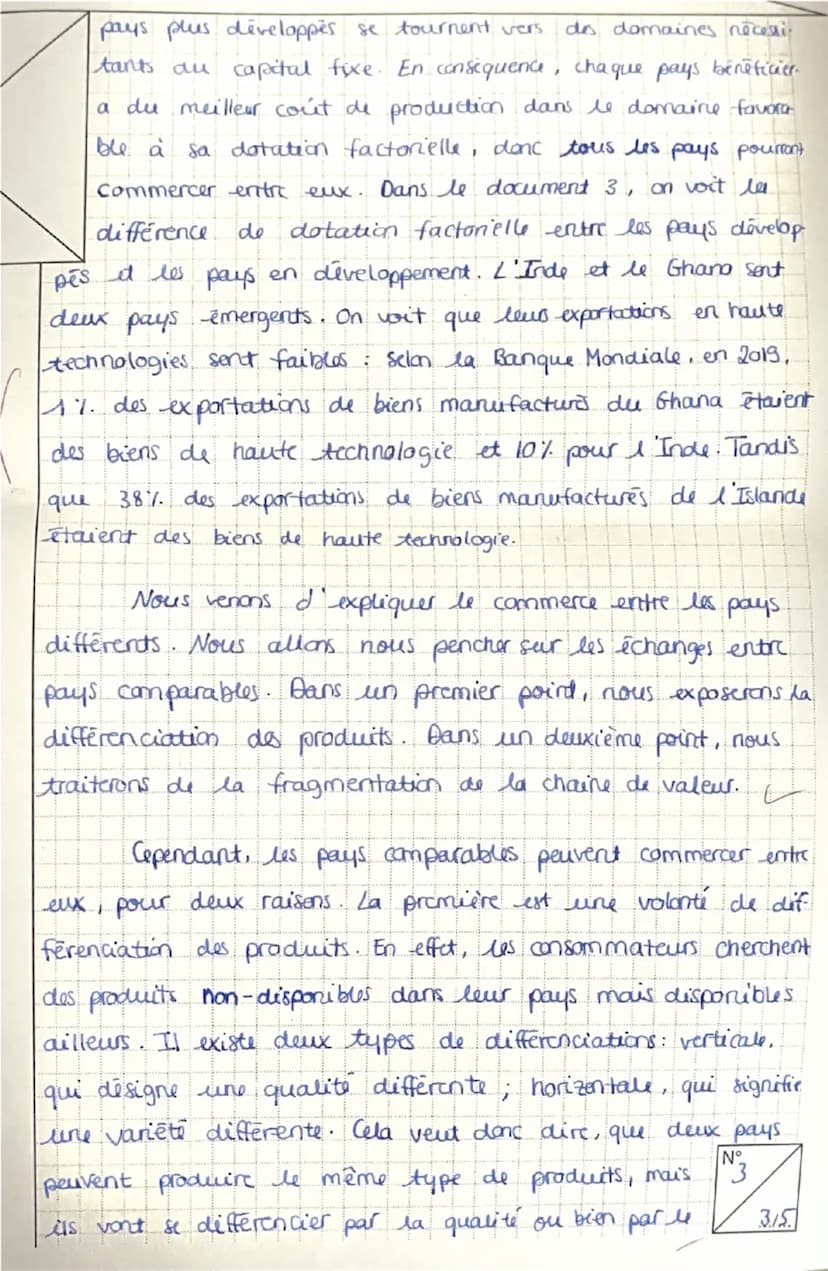 pays plus développés se tournent vers des domaines nécessi-
tants du capital fixe. En conséquence, chaque pays bénéficier-
a du meilleur coût de production dans le domaine favora
ble à sa dotation factorielle, donc tous les pays pourront
commercer entre eux. Dans le document 3, on voit la
différence de dotation factorielle entre les pays dévelop
pés et les pays en développement. L'Inde et le Ghana sont
deux pays émergents. On voit que leurs exportations en haute
technologies sont faibles : selon la Banque Mondiale, en 2019,
1%. des exportations de biens manufacturés du Ghana étaient
des biens de haute technologie et 10% pour l'Inde. Tandis
que 38%. des exportations de biens manufacturés de l'Islande
étaient des biens de haute technologie.
Nous venons d'expliquer le commerce entre les pays
différents. Nous allons nous pencher sur les échanges entre
pays comparables. Dans un premier point, nous exposerons la
différenciation des produits. Dans un deuxième point, nous
traiterons de la fragmentation de la chaine de valeur.
Cependant, les pays comparables peuvent commercer entre
eux, pour deux raisons. La première est une volonté de dif-
férenciation des produits. En effet, les consommateurs cherchent
des produits non-disponibles dans leur pays mais disponibles
ailleurs. Il existe deux types de différenciations : verticale,
qui désigne une qualité différente ; horizontale, qui signifie
une variété différente. Cela veut donc dire, que deux pays
peuvent produire le même type de produits, mais
ils vont se différencier par la qualité ou bien par le
N°
3
3/5.